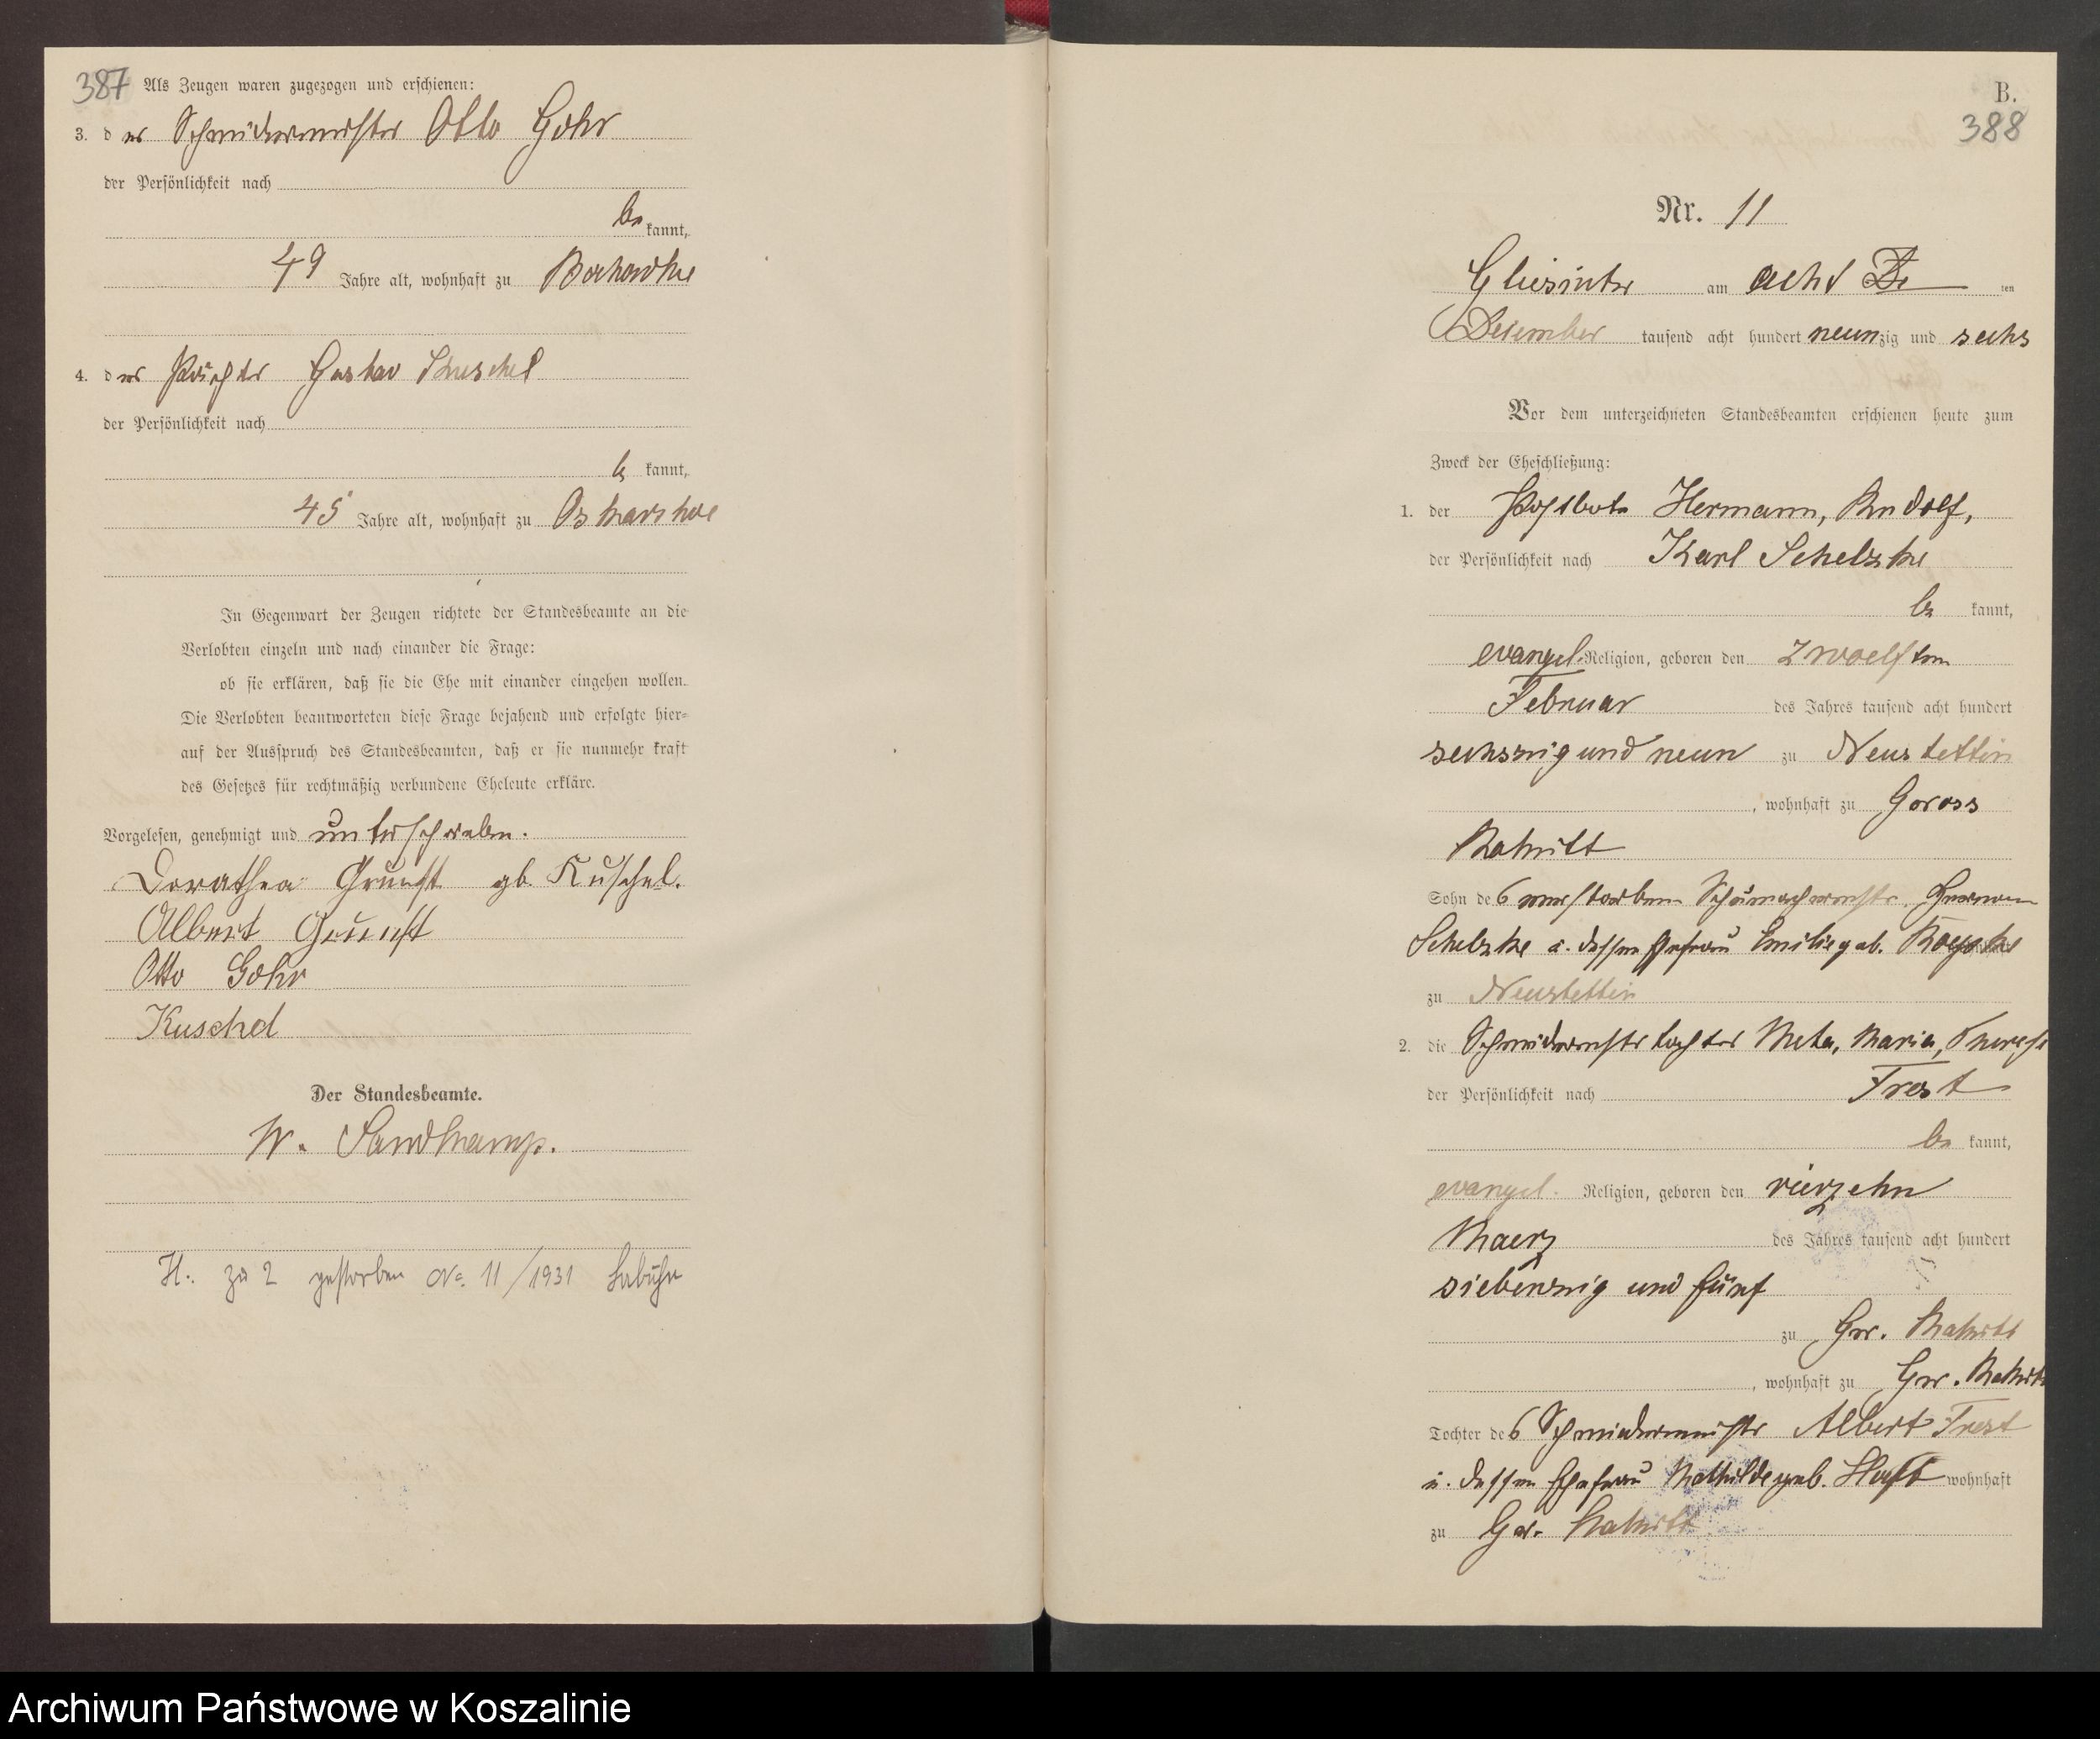 387 Als Zeugen waren zugezogen und erschienen:
3. der Schneidermeister Otto Gohr
der Persönlichkeit nach
bekannt,
49 Jahre alt, wohnhaft zu
4. der Pächter Gustav Kuschel
der Persönlichkeit nach
bekannt,
45 Jahre alt, wohnhaft zu
In Gegenwart der Zeugen richtete der Standesbeamte an die
Verlobten einzeln und nach einander die Frage:
ob sie erklären, daß sie die Ehe mit einander eingehen wollen.
Die Verlobten beantworteten diese Frage bejahend und erfolgte hier-
auf der Ausspruch des Standesbeamten, daß er sie nunmehr kraft
des Gesetzes für rechtmäßig verbundene Eheleute erkläre.
Vorgelesen, genehmigt und unterschrieben.
Dorathea gb. Kuschel.
Albert
Otto Gohr
Kuschel
Der Standesbeamte.
W. Sandkamp.
H. zu 2 gestorben No. 11/1931 Labuhn
B.
388
Nr. 11
am acht ten
Dezember tausend acht hundert neunzig und sechs
Vor dem unterzeichneten Standesbeamten erschienen heute zum
Zweck der Eheschließung:
1. der Postbote Hermann, Rudolf,
der Persönlichkeit nach Karl Schelzke
bekannt,
evangel. Religion, geboren den zwoelften
Februar des Jahres tausend acht hundert
sechszig und neun zu Neustettin
, wohnhaft zu Gross
Rakitt
Sohn des verstorbenen Schuhmachermstr. Hermann
Schelzke u. dessen Ehefrau Emilie geb.
zu Neustettin
2. die Meta, Maria, Therese
der Persönlichkeit nach Trest
bekannt,
evangel. Religion, geboren den vierzehn
Maerz des Jahres tausend acht hundert
siebenzig und fünf
zu Gr. Rakitt
, wohnhaft zu Gr. Rakitt
Tochter des Schneidermeister Albert Trest
u. dessen Ehefrau Mathilde geb. wohnhaft
zu Gr. Rakitt
Archiwum Państwowe w Koszalinie